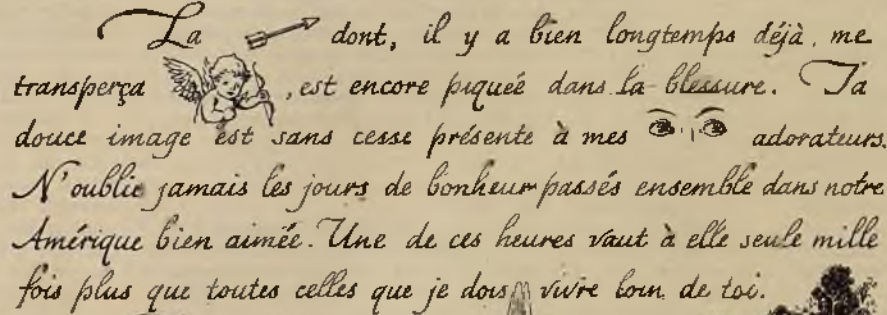 La dont, il y a bien longtemps déjà, me
transperça , est encore piquée dans la blessure. Ta
douce image est sans cesse présente à mes adorateurs.
N'oublie jamais les jours de bonheur passés ensemble dans notre
Amérique bien aimée. Une de ces heures vaut à elle seule mille
fois plus que toutes celles que je dois vivre loin de toi.